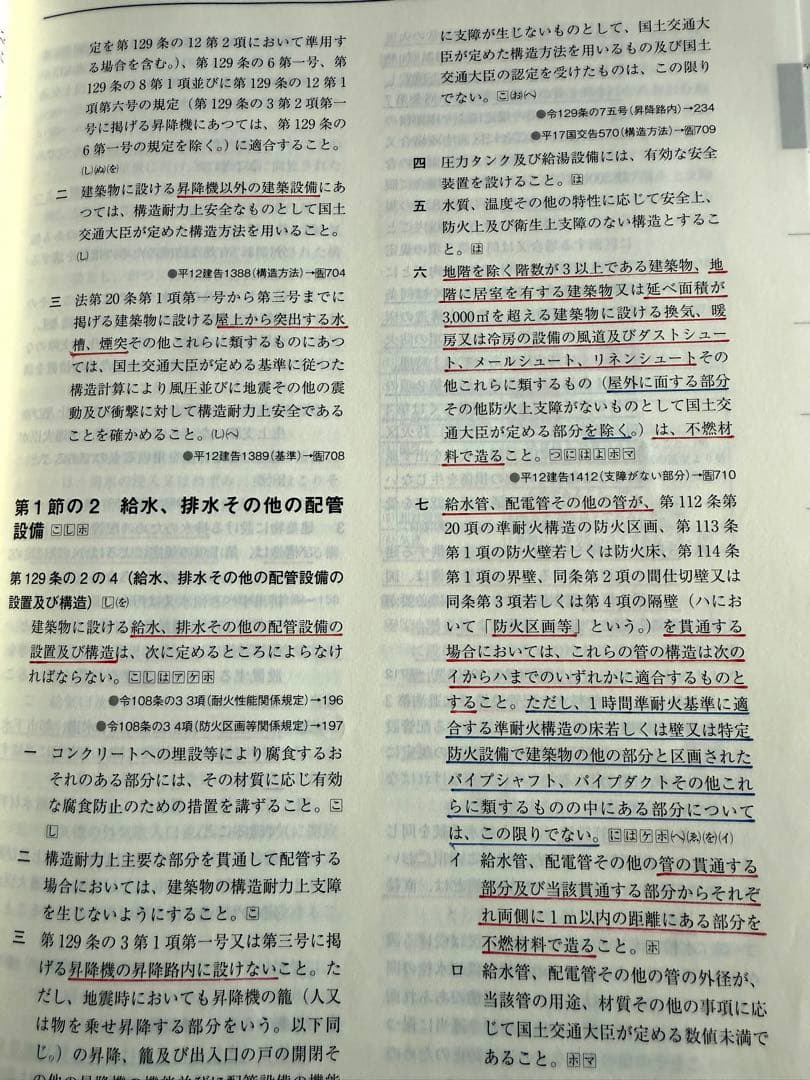 定を第129条の12第2項において準用す
る場合を含む。)、第129条の6第一号、第
129条の8第1項並びに第129条の12第1
項第六号の規定（第129条の3第2項第一
号に掲げる昇降機にあつては、第129条の
6第一号の規定を除く。)に適合すること。
(し)(ぬ)(を)
二 建築物に設ける昇降機以外の建築設備にあ
つては、構造耐力上安全なものとして国土
交通大臣が定めた構造方法を用いること。
(し)
●平12建告1388(構造方法)→告704
三 法第20条第1項第一号から第三号までに
掲げる建築物に設ける屋上から突出する水
槽、煙突その他これらに類するものにあつ
ては、国土交通大臣が定める基準に従つた
構造計算により風圧並びに地震その他の震
動及び衝撃に対して構造耐力上安全である
ことを確かめること。(し)(へ)
●平12建告1389(基準)→告708
第1節の2 給水、排水その他の配管
設備 こしホ
第129条の2の4（給水、排水その他の配管設備の
設置及び構造）し(を)
建築物に設ける給水、排水その他の配管設備の
設置及び構造は、次に定めるところによらなけ
ればならない。こしはアケホ
●令108条の3 3項(耐火性能関係規定)→196
●令108条の3 4項(防火区画等関係規定)→197
一 コンクリートへの埋設等により腐食するお
それのある部分には、その材質に応じ有効
な腐食防止のための措置を講ずること。こ
し
二 構造耐力上主要な部分を貫通して配管する
場合においては、建築物の構造耐力上支障
を生じないようにすること。こ
三 第129条の3第1項第一号又は第三号に掲
げる昇降機の昇降路内に設けないこと。た
だし、地震時においても昇降機の籠（人又
は物を乗せ昇降する部分をいう。以下同
じ。）の昇降、籠及び出入口の戸の開閉そ
の他の昇降機の機能並びに配管設備の機能
に支障が生じないものとして、国土交通大
臣が定めた構造方法を用いるもの及び国土
交通大臣の認定を受けたものは、この限り
でない。こ(お)へ
●令129条の7五号(昇降路内)→234
●平17国交告570(構造方法)→告709
四 圧力タンク及び給湯設備には、有効な安全
装置を設けること。は
五 水質、温度その他の特性に応じて安全上、
防火上及び衛生上支障のない構造とするこ
と。は
六 地階を除く階数が3以上である建築物、地
階に居室を有する建築物又は延べ面積が
3,000㎡を超える建築物に設ける換気、暖
房又は冷房の設備の風道及びダストシュー
ト、メールシュート、リネンシュートその
他これらに類するもの（屋外に面する部分
その他防火上支障がないものとして国土交
通大臣が定める部分を除く。）は、不燃材
料で造ること。つにはよホマ
●平12建告1412(支障がない部分)→告710
七 給水管、配電管その他の管が、第112条第
20項の準耐火構造の防火区画、第113条
第1項の防火壁若しくは防火床、第114条
第1項の界壁、同条第2項の間仕切壁又は
同条第3項若しくは第4項の隔壁（ハにお
いて「防火区画等」という。）を貫通する
場合においては、これらの管の構造は次の
イからハまでのいずれかに適合するものと
すること。ただし、1時間準耐火基準に適
合する準耐火構造の床若しくは壁又は特定
防火設備で建築物の他の部分と区画された
パイプシャフト、パイプダクトその他これ
らに類するものの中にある部分について
は、この限りでない。にはケホ(へ)(ゑ)(を)(イ)
イ 給水管、配電管その他の管の貫通する
部分及び当該貫通する部分からそれぞ
れ両側に1m以内の距離にある部分を
不燃材料で造ること。ホ
ロ 給水管、配電管その他の管の外径が、
当該管の用途、材質その他の事項に応
じて国土交通大臣が定める数値未満で
あること。ホマ